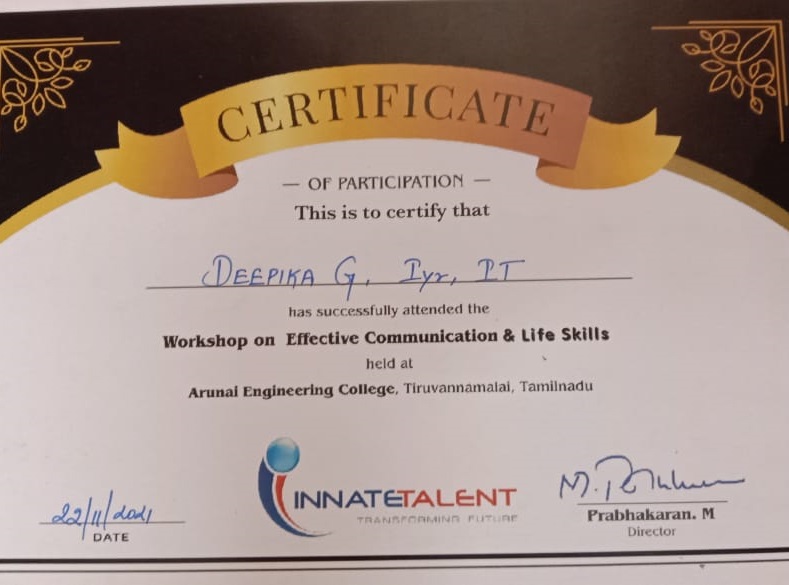 CERTIFICATE
— OF PARTICIPATION —
This is to certify that
DEEPIKA G, Iyr, IT
has successfully attended the
Workshop on Effective Communication & Life Skills
held at
Arunai Engineering College, Tiruvannamalai, Tamilnadu
22/11/2021
DATE
INNATETALENT
TRANSFORMING FUTURE
Prabhakaran. M
Director